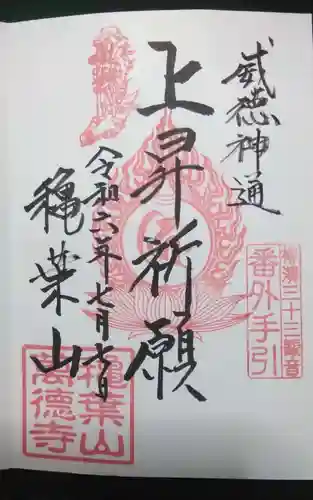 威徳神通
上昇祈願
令和六年七月七日
穐葉山
三十三観音
番外手引
穐葉山
萬德寺